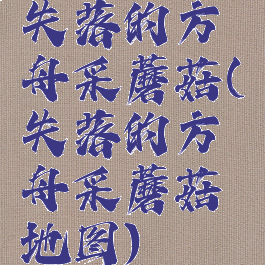 失落的方
舟采蘑菇(
失落的方
舟采蘑菇
地图)